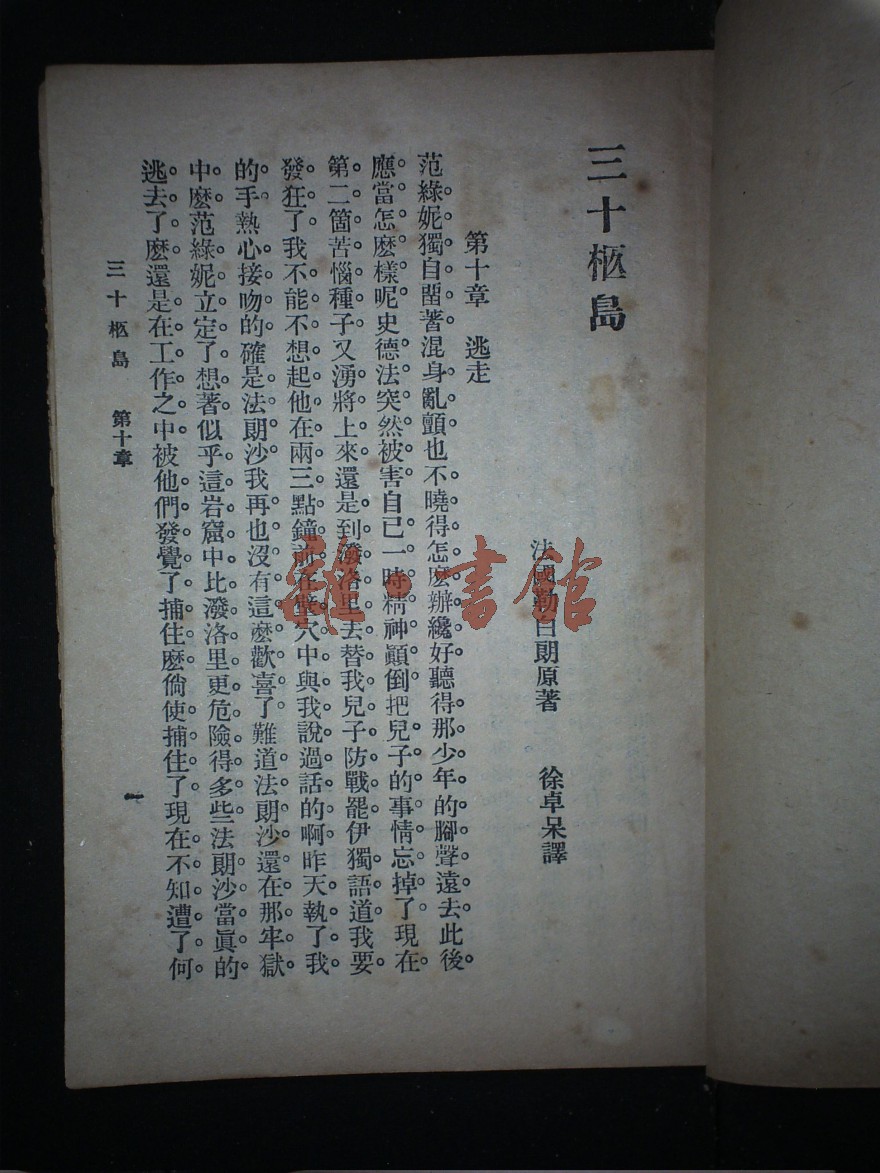 三十柩島
法國勒白朗原著　徐卓呆譯
第十章　逃走
范綠妮獨自留著混身亂顫也不曉得怎麽辦纔好聽得那少年的腳聲遠去此後
應當怎麽樣呢史德法突然被害自己一時精神顚倒把兒子的事情忘掉了現在
第二箇苦惱種子又湧將上來還是到潑洛里去替我兒子防戰罷伊獨語道我要
發狂了我不能不想起他在兩三點鐘前在壁穴中與我說過話的啊昨天執了我
的手熱心接吻的確是法朗沙我再也沒有這麽歡喜了難道法朗沙還在那牢獄
中麽范綠妮立定了想著似乎這岩窟中比潑洛里更危險得多些法朗沙當眞的
逃去了麽還是在工作之中被他們發覺了捕住麽倘使捕住了現在不知遭了何
三十柩島　第十章
一
雜·書館